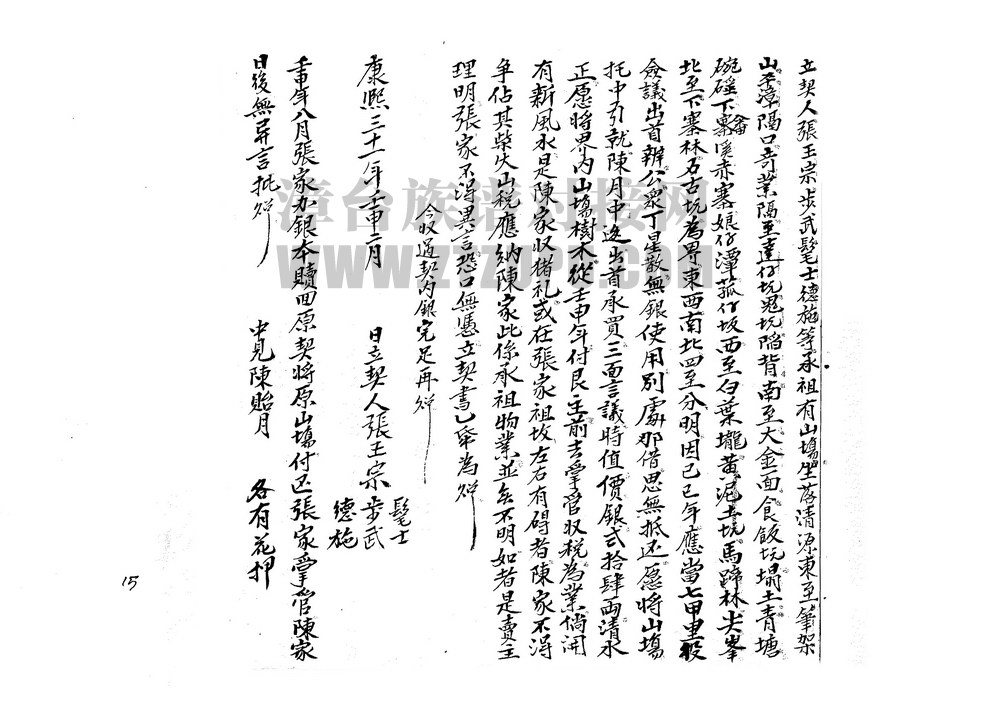 立契人張王宗步武髦士德施等承祖有山塲坐落清源東至筆架
山李漳隔口奇業隔至達仔坑鬼坑隔背南至大金面食飯坑塌土青塘
碗磘下畲溪赤寨娘仔潭菰仔坂西至白葉壠黄泥土坑馬蹄林尖峯
北至下寨林石古坑為界東西南北四至分明因己巳年應當七甲里役
僉議出首辦公衆丁星散無銀使用別處那借思無抵还愿將山塲
托中引就陳月中边出首承買三面言議時值價銀弍拾肆両清水
正愿將界內山塲樹木從壬申年付艮主前去掌管収税為業倘開
有新風水是陳家収猪礼或在張家祖坟左右有碍者陳家不得
争佔其柴火山税應納陳家此係承祖物業並無不明如者是賣主
理明張家不得異言恐口無憑立契書乙帋為炤
今収過契內銀完足再炤
康熙三十一年壬申二月 日立契人張王宗步武
髦士
德施
壬申年八月張家办銀本贖回原契將原山塲付还張家掌管陳家
日後無异言批炤 中見陳貽月 各有花押
15
漳台族谱对接网
WWW.ZTZUPU.COM